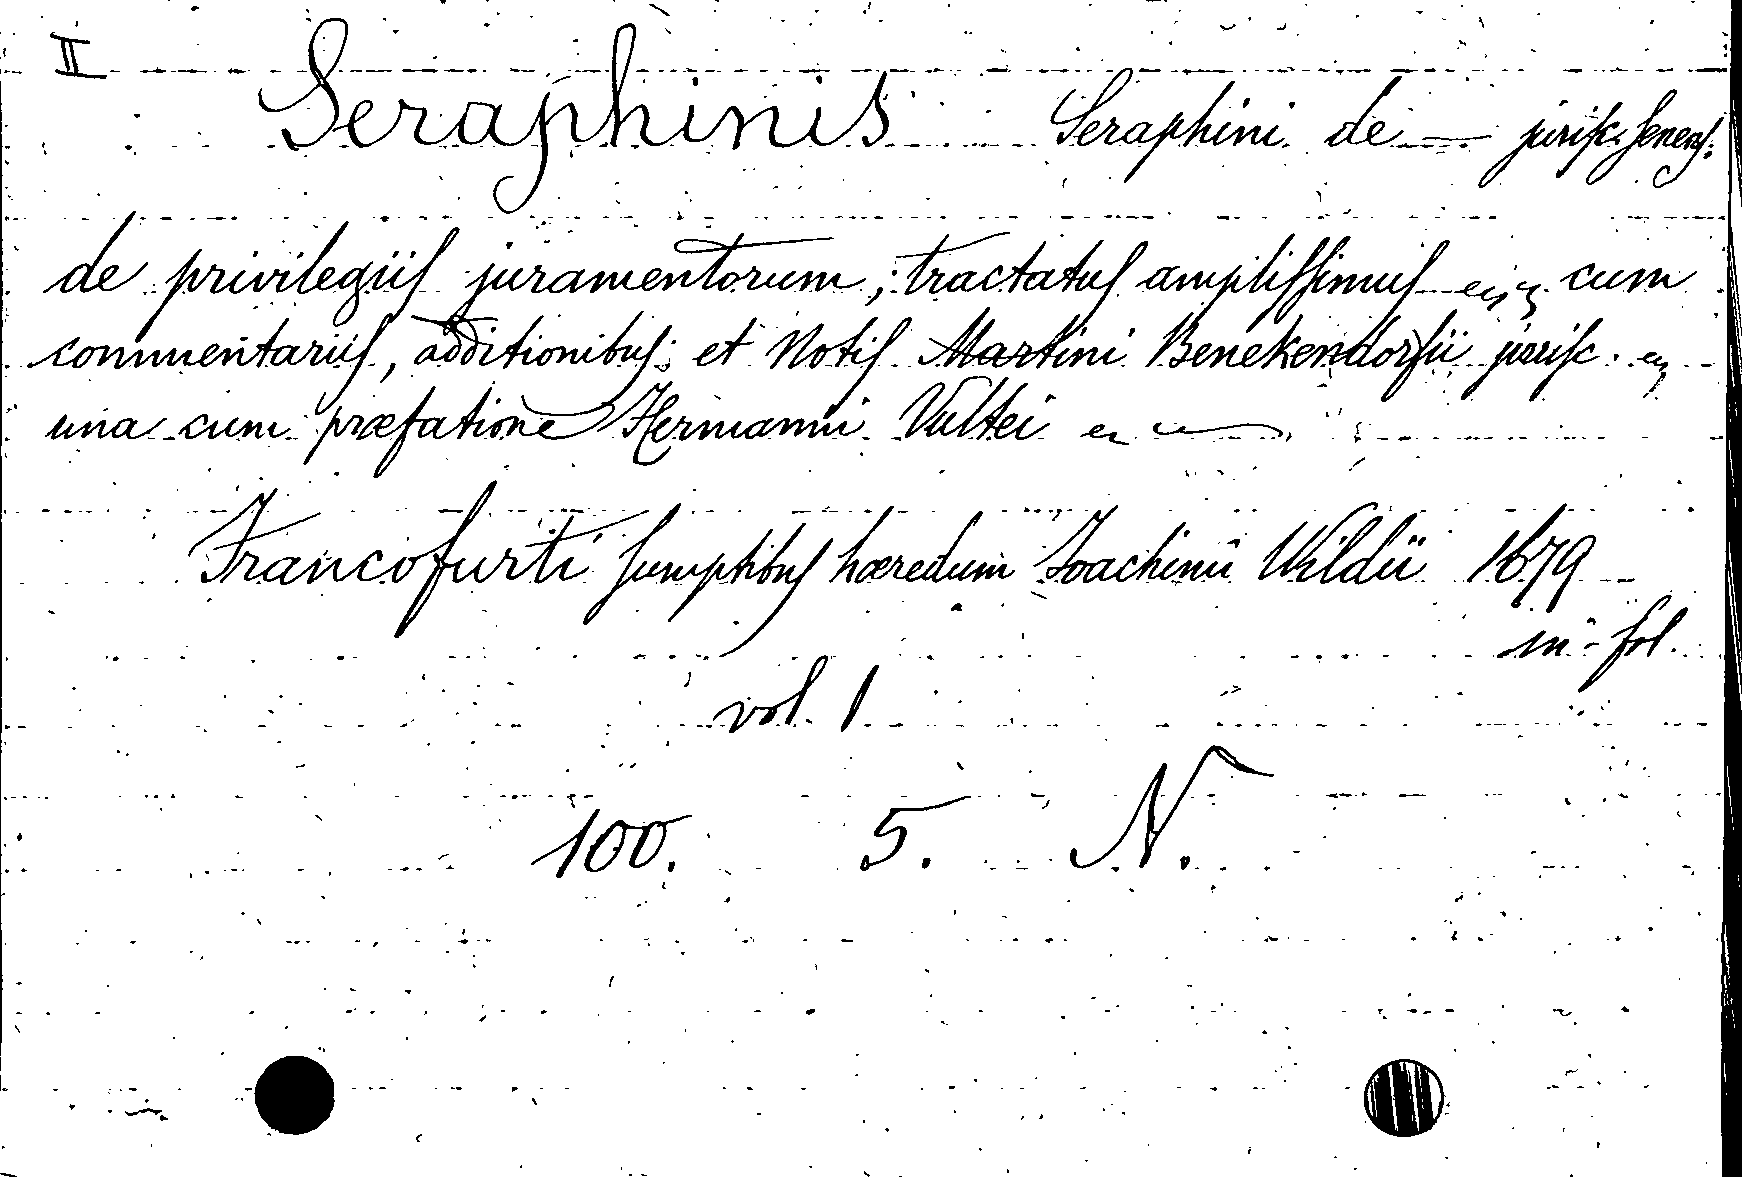 II
Seraphinis Seraphini de — juriſc. ſenenſ.
de privilegiiſ juramentorum, tractatuſ ampliſſimuſ cum
commentariiſ, additionibuſ et Notiſ Martini Benekendorfii juriſc.
una cum præfatione Hermanni Vultei
Francofurti ſumptibuſ hæredum Joachimi Wildii 1679
in-fol.
vol. 1
100. 5. N.